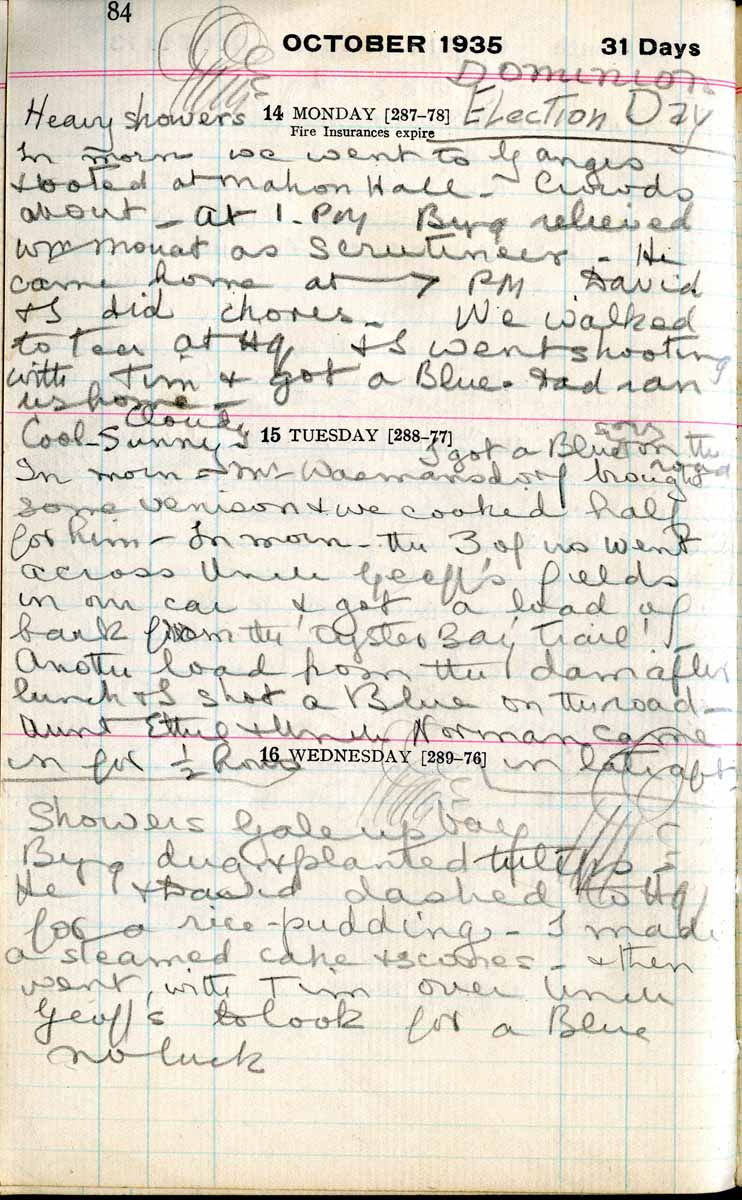 84
OCTOBER 1935 31 Days
Dominion
Heavy showers 14 MONDAY [287-78] Election Day
Fire Insurances expire
In morn we went to Ganges
& voted at Mahon Hall - Crowds
about - At 1. PM Byng relieved
Wm Mouat as Scrutineer - He
came home at 7 PM David
& I did chores - We walked
to tea at Hq & I went shooting
with Tim & got a Blue. Dad ran
us home -
Cloudy
Cool - Sunny 15 TUESDAY [288-77]
I got a Blue on the
road
In morn - Mr brought
some venison & we cooked half
for him - In morn - the 3 of us went
across Uncle Geoff's fields
in our car & got a load of
bark from the 'Oyster Bay Trail' -
Another load from the dam after
lunch & I shot a Blue on the road -
Aunt Ethel & Uncle Norman came
in for ½ hour in late aft.
16 WEDNESDAY [289-76]
Showers Gale up bay
Byng dug & planted tulips
He & David dashed to Hq
for a rice-pudding - I made
a steamed cake & scones - & then
went with Tim over Uncle
Geoff's to look for a Blue
no luck